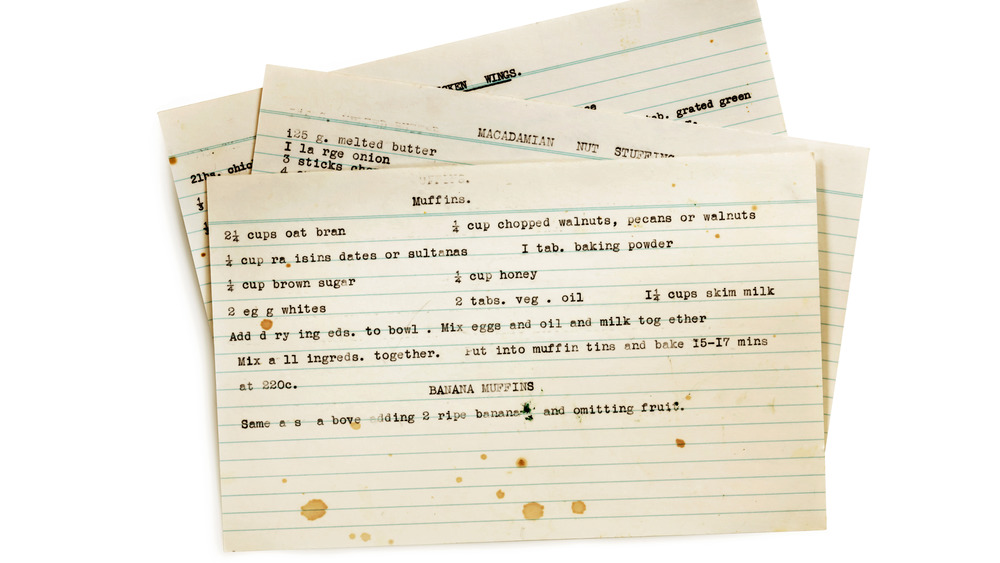 WINGS.
tab. grated green
2lbs.
MACADAMIAN NUT STUFFING
125 g. melted butter
I la rge onion
3 sticks
4
Muffins.
2¼ cups oat bran ¼ cup chopped walnuts, pecans or walnuts
¼ cup ra isins dates or sultanas I tab. baking powder
¼ cup brown sugar ¼ cup honey
2 eg g whites 2 tabs. veg . oil I¼ cups skim milk
Add d ry ing eds. to bowl . Mix eggs and oil and milk tog ether
Mix a ll ingreds. together. Put into muffin tins and bake I5-I7 mins
at 220c.
BANANA MUFFINS .
Same a s a bove adding 2 ripe banana and omitting fruit.